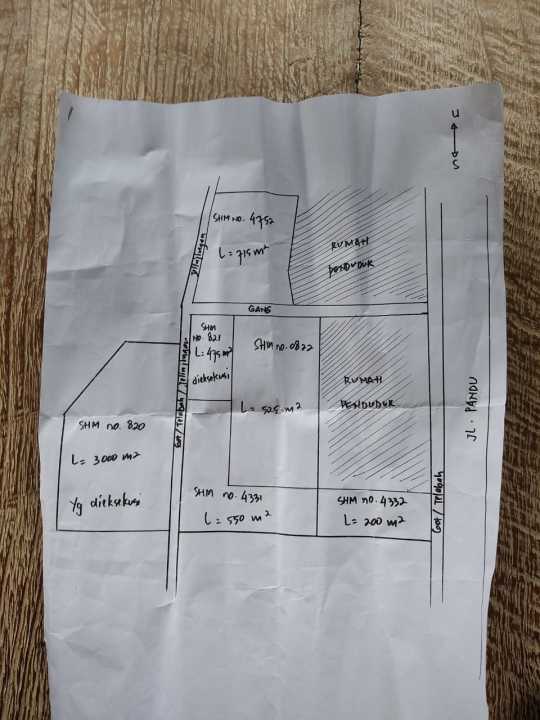 U
S
SHM NO. 4752
L = 715 m²
RUMAH
PENDUDUK
GANG
SHM
NO. 821
L = 475 m²
dieksekusi
SHM NO. 0822
L = 525 m²
RUMAH
PENDUDUK
JL. PANDU
SHM NO. 820
L = 3000 m²
Yg dieksekusi
Got / Telabah /
SHM NO. 4331
L = 550 m²
SHM NO. 4332
L = 200 m²
Got / Telabah